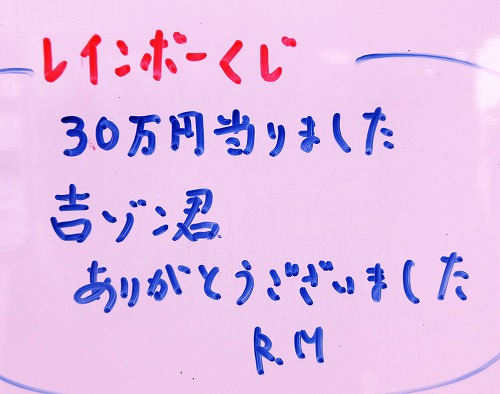 レインボーくじ
30万円当りました
吉ゾン君
ありがとうございました
R.M